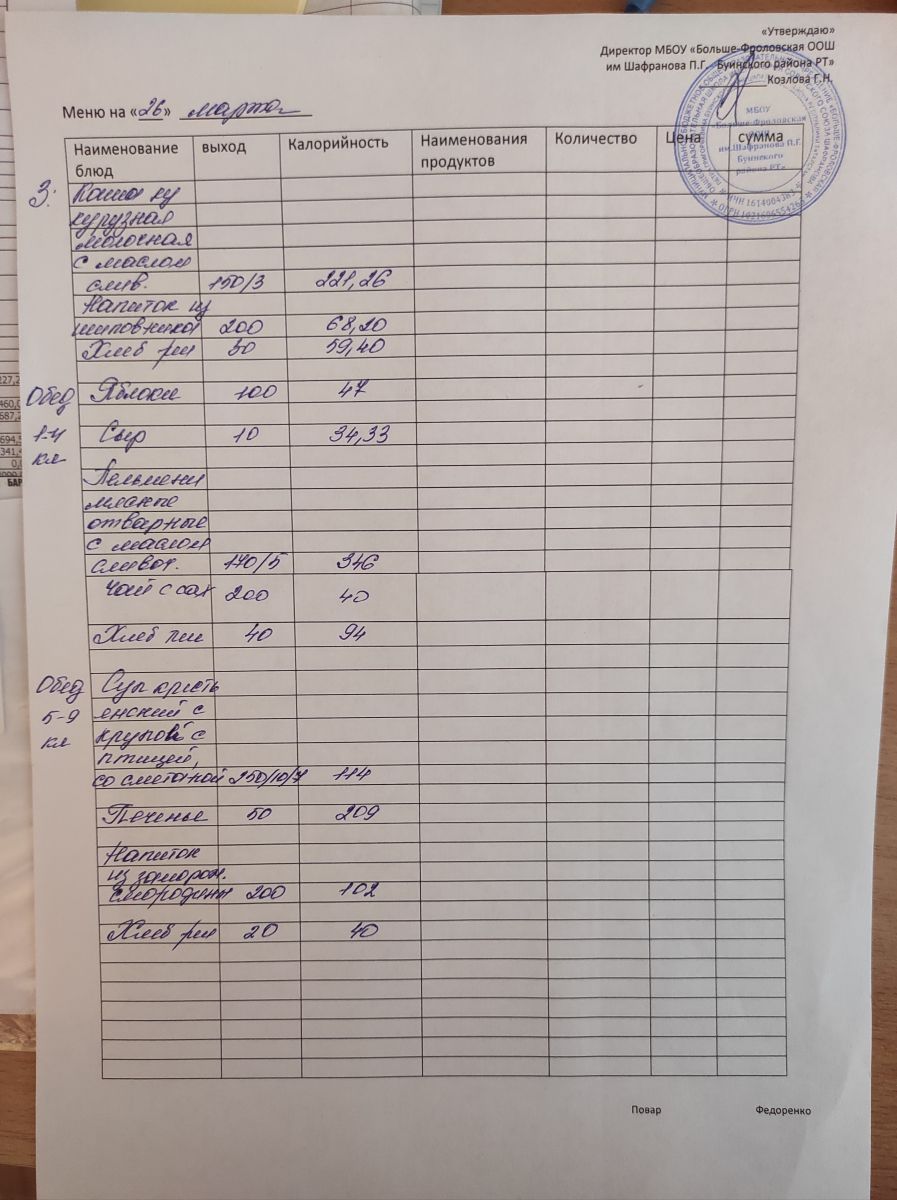 «Утверждаю»
Директор МБОУ «Больше-Фроловская ООШ
им Шафранова П.Г. Буинского района РТ»
Козлова Г.Н.
МБОУ
«Больше-Фроловская
ООШ
им.Шафранова П.Г.
Буинского
района РТ»
Меню на «26» марта
Наименование блюд выход Калорийность Наименования продуктов Количество Цена сумма
З: Каша ку
курузная
молочная
с маслом
слив. 150/3 221,26
Напиток из
шиповника 200 68,20
Хлеб рж 30 59,40
Обед Яблоки 100 47
1-4 Сыр 10 34,33
кл
Пельмени
мясные
отварные
с маслом
сливоч. 170/5 346
Чай с сах 200 40
Хлеб пш 40 94
Обед Суп кресть
5-9 янский с
кл крупой с
птицей,
со сметаной 250/10/7 114
Печенье 50 209
Напиток
из заморож.
смородины 200 102
Хлеб рж 20 40
Повар Федоренко